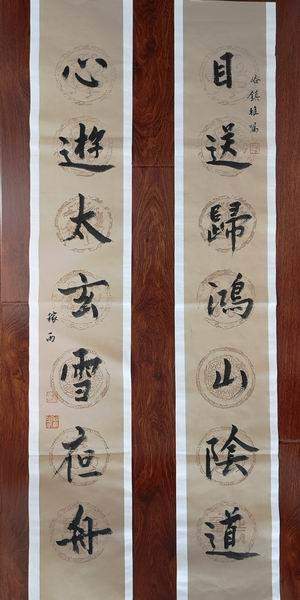 目送歸鴻山陰道
心遊太玄雪夜舟